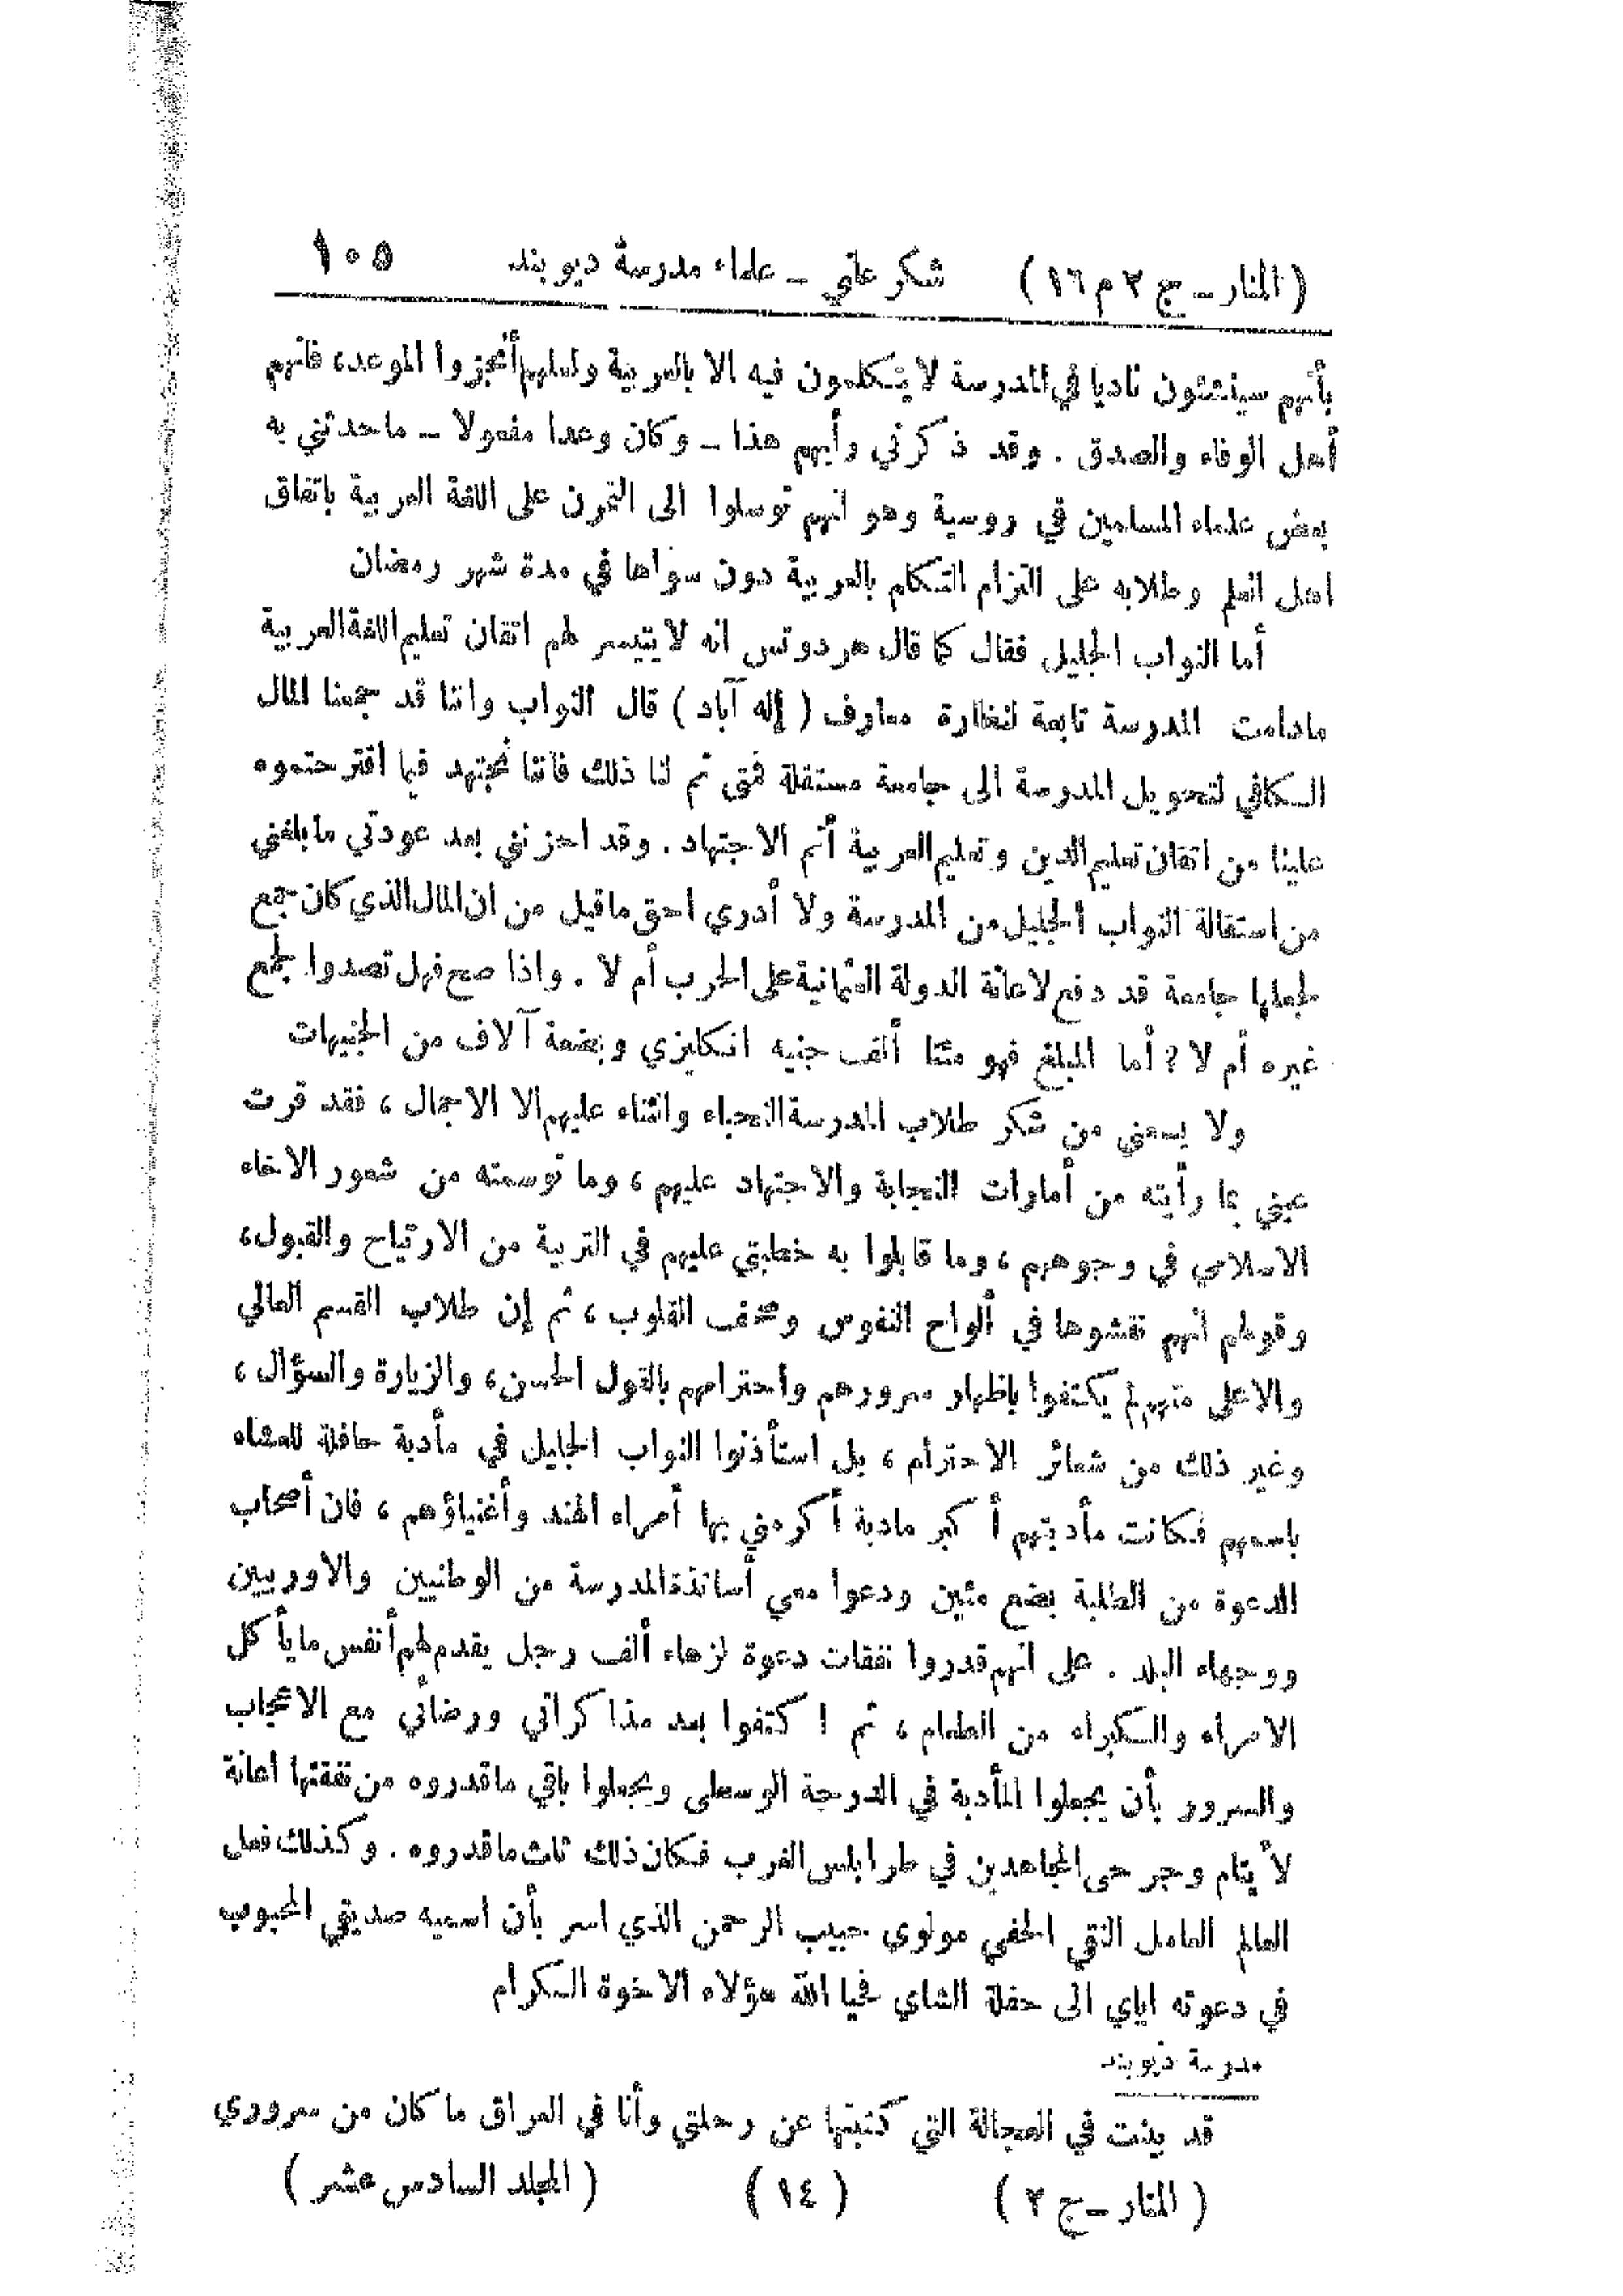 (المنار ـ ج ٢ م ١٦) شكر علني ـ علماء مدرسة ديوبند ١٠٥
بأنهم سينشئون ناديا في المدرسة لا يتكلمون فيه الا بالعربية ولعلهم أنجزوا الموعد، فانهم
أهل الوفاء والصدق . وقد ذكرني رأيهم هذا ـ وكان وعدا مفعولا ـ ما حدثني به
بعض علماء المسلمين في روسية وهو انهم توسلوا الى التمرن على اللغة العربية باتفاق
اهل العلم وطلابه على التزام التكلم بالعربية دون سواها في مدة شهر رمضان
أما النواب الجليل فقال كما قال هردوتس انه لا يتيسر لهم اتقان تعليم اللغة العربية
مادامت المدرسة تابعة لنظارة معارف ( إله آباد ) قال النواب واننا قد جمعنا المال
الكافي لتحويل المدرسة الى جامعة مستقلة فمتى تم لنا ذلك فاننا نجتهد فيما اقترحتموه
علينا من اتقان تعليم الدين وتعليم العربية أتم الاجتهاد . وقد احزنني بعد عودتي ما بلغني
من استقالة النواب الجليل من المدرسة ولا أدري احق ماقيل من ان المال الذي كان جمع
لجعلها جامعة قد دفع لاعانة الدولة العثمانية على الحرب أم لا . واذا صح فهل تصدوا لجمع
غيره أم لا ؟ أما المبلغ فهو مئتا ألف جنيه انكليزي وبضعة آلاف من الجنيهات
ولا يسعني من شكر طلاب المدرسة النجباء والثناء عليهم الا الاجمال ، فقد قرت
عيني بما رأيته من أمارات النجابة والاجتهاد عليهم ، وما توسمته من شعور الاخاء
الاسلامي في وجوههم ، وما قابلوا به خطبتي عليهم في التربية من الارتياح والقبول،
وقولهم انهم نقشوها في ألواح النفوس وصحف القلوب ، ثم إن طلاب القسم العالي
والاعلى منهم لم يكتفوا باظهار سرورهم واحترامهم بالقول الحسن، والزيارة والسؤال ،
وغير ذلك من شعائر الاحترام ، بل استأذنوا النواب الجليل في مأدبة حافلة للعشاء
باسمهم فكانت مأدبتهم أكبر مادبة أكرمني بها أمراء الهند وأغنياؤهم ، فان أصحاب
الدعوة من الطلبة بضع مئين ودعوا معي أساتذة المدرسة من الوطنيين والاوربيين
ووجهاء البلد . على انهم قدروا نفقات دعوة لزهاء ألف رجل يقدم لهم أنفس ما يأكل
الامراء والكبراء من الطعام ، ثم اكتفوا بعد مذاكراتي ورضائي مع الاعجاب
والسرور بأن يجعلوا المأدبة في الدرجة الوسطى ويجعلوا باقي ماقدروه من نفقتها اعانة
لأيتام وجرحى المجاهدين في طرابلس الغرب فكان ذلك ثلث ماقدروه . وكذلك فعل
العالم العامل التقي الخفي مولوي حبيب الرحمن الذي اسر بأن اسميه صديقي المحبوب
في دعوته اياي الى حفلة الشاي فحيا الله هؤلاء الاخوة الكرام
مدرسة ديوبند
قد بينت في العجالة التي كتبتها عن رحلتي وأنا في العراق ما كان من سروري
( المنار ـ ج ٢ ) ( ١٤ ) ( المجلد السادس عشر )